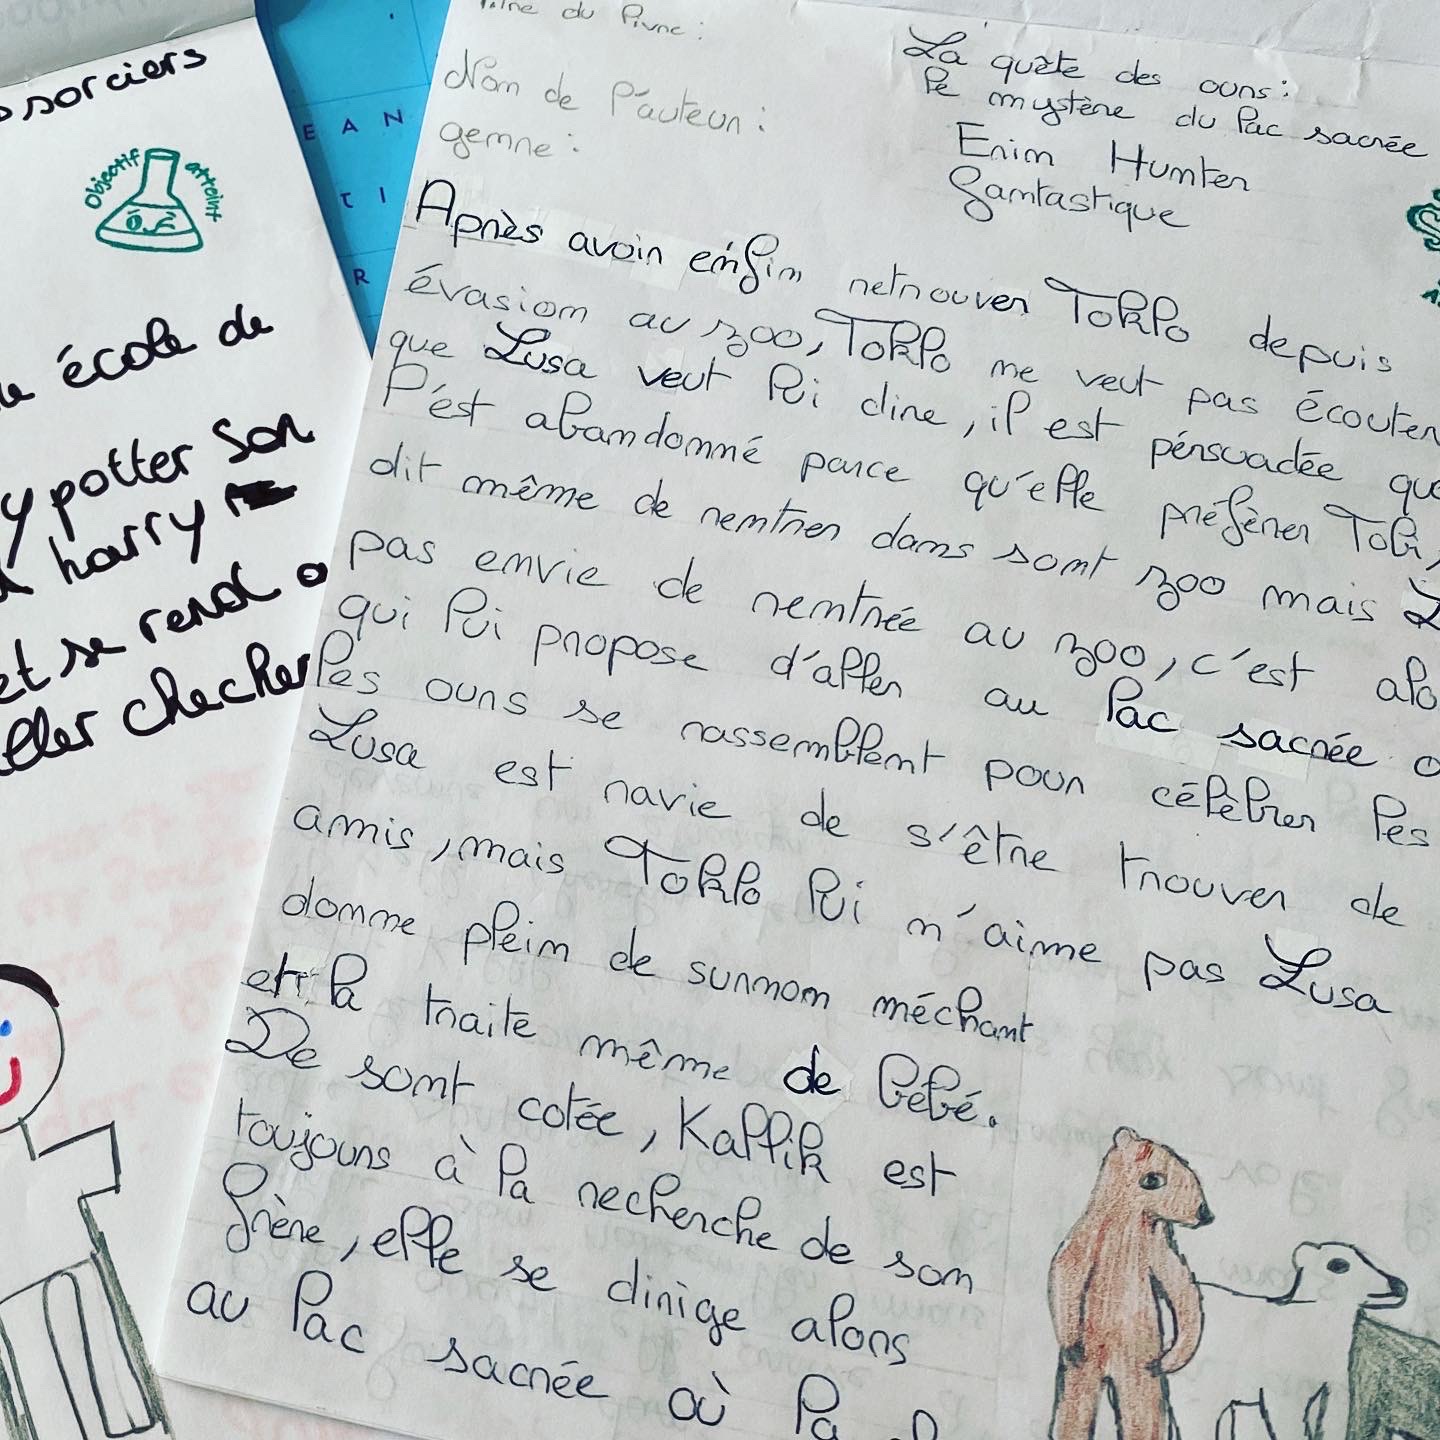 sorciers
Objectif atteint
école de
potter son
harry
et se rend
checher
E A N
T I
R
Titre du livre :
La quête des ours :
le mystère du lac sacrée
Nom de l'auteur :
Erin Hunter
genre :
fantastique
Après avoir enfin retrouver Toklo depuis
évasion au zoo, Toklo ne veut pas écouter
que Lusa veut lui dire, il est pérsuadée que
l'ést abandonné parce qu'elle préférer Tobi,
dit même de rentrer dans sont zoo mais
pas envie de rentrée au zoo, c'est
qui lui propose d'aller au lac sacrée
les ours se rassemblent pour célèbrer les
Lusa est ravie de s'être trouver de
amis, mais Toklo lui n'aime pas Lusa
donne plein de surnom méchant
et la traite même de bébé.
De sont cotée, Kallik est
toujours à la recherche de son
frère, elle se dirige alors
au lac sacrée où la